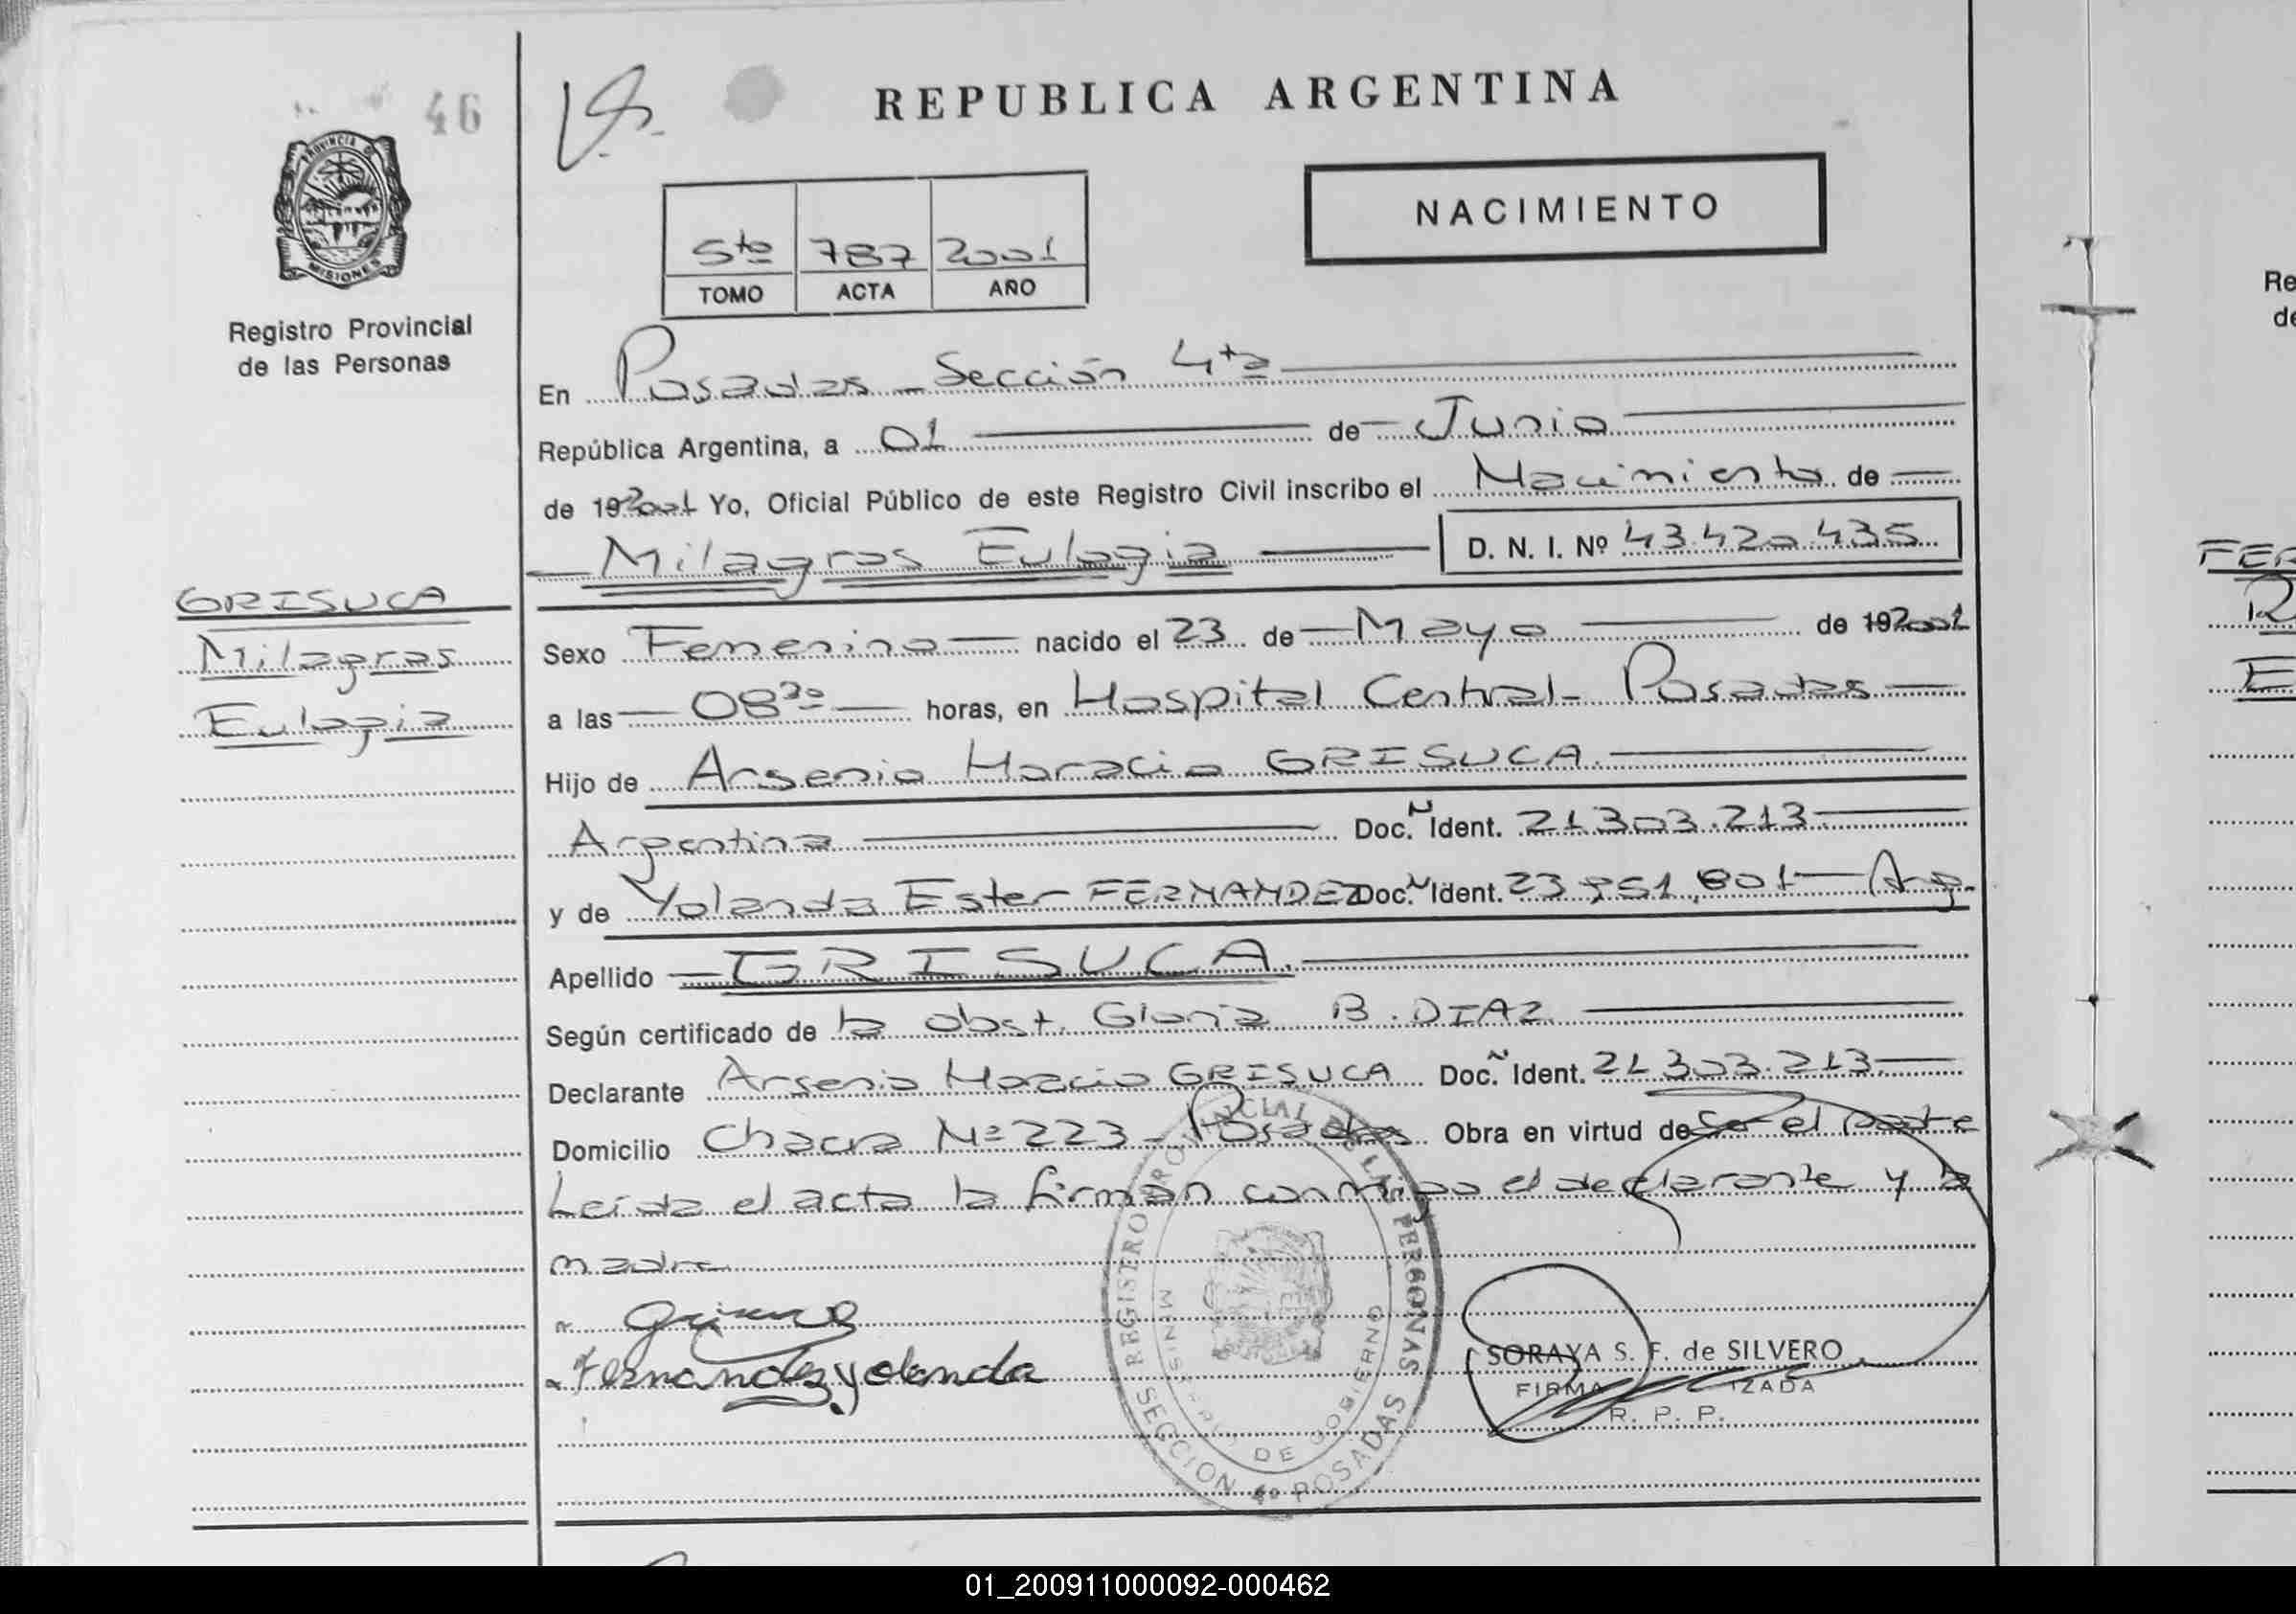 46
REPUBLICA ARGENTINA
PROVINCIA DE
MISIONES
NACIMIENTO
5to 787 2001
TOMO ACTA AÑO
Registro Provincial
de las Personas
En Posadas - Sección 4ta
República Argentina, a 01 de Junio
de 192001 Yo, Oficial Público de este Registro Civil inscribo el Nacimiento de
Milagros Eulogia D. N. I. Nº 43.420.435
GRISUCA
Milagros
Eulogia
Sexo Femenino nacido el 23 de Mayo de 192001
a las 08³⁰ horas, en Hospital Central - Posadas
Hijo de Arsenio Horacio GRISUCA
Argentina Doc. Ident. 21.303.213
y de Yolanda Ester FERNANDEZ Doc. Ident. 23.951.801 - Arg.
Apellido GRISUCA.
Según certificado de la obst. Gloria B. DIAZ
Declarante Arsenio Horacio GRISUCA Doc. Ident. 21.303.213
Domicilio Chacra Nº 223 - Posadas Obra en virtud de ser el padre
Leída el acta la firman conmigo el declarante y la
madre
Fernandez yolanda
REGISTRO PROVINCIAL DE LAS PERSONAS
MINISTERIO DE GOBIERNO
SECCION 4º POSADAS
SORAYA S. F. de SILVERO
R. P. P.
Re
de
FER
E
01_200911000092-000462